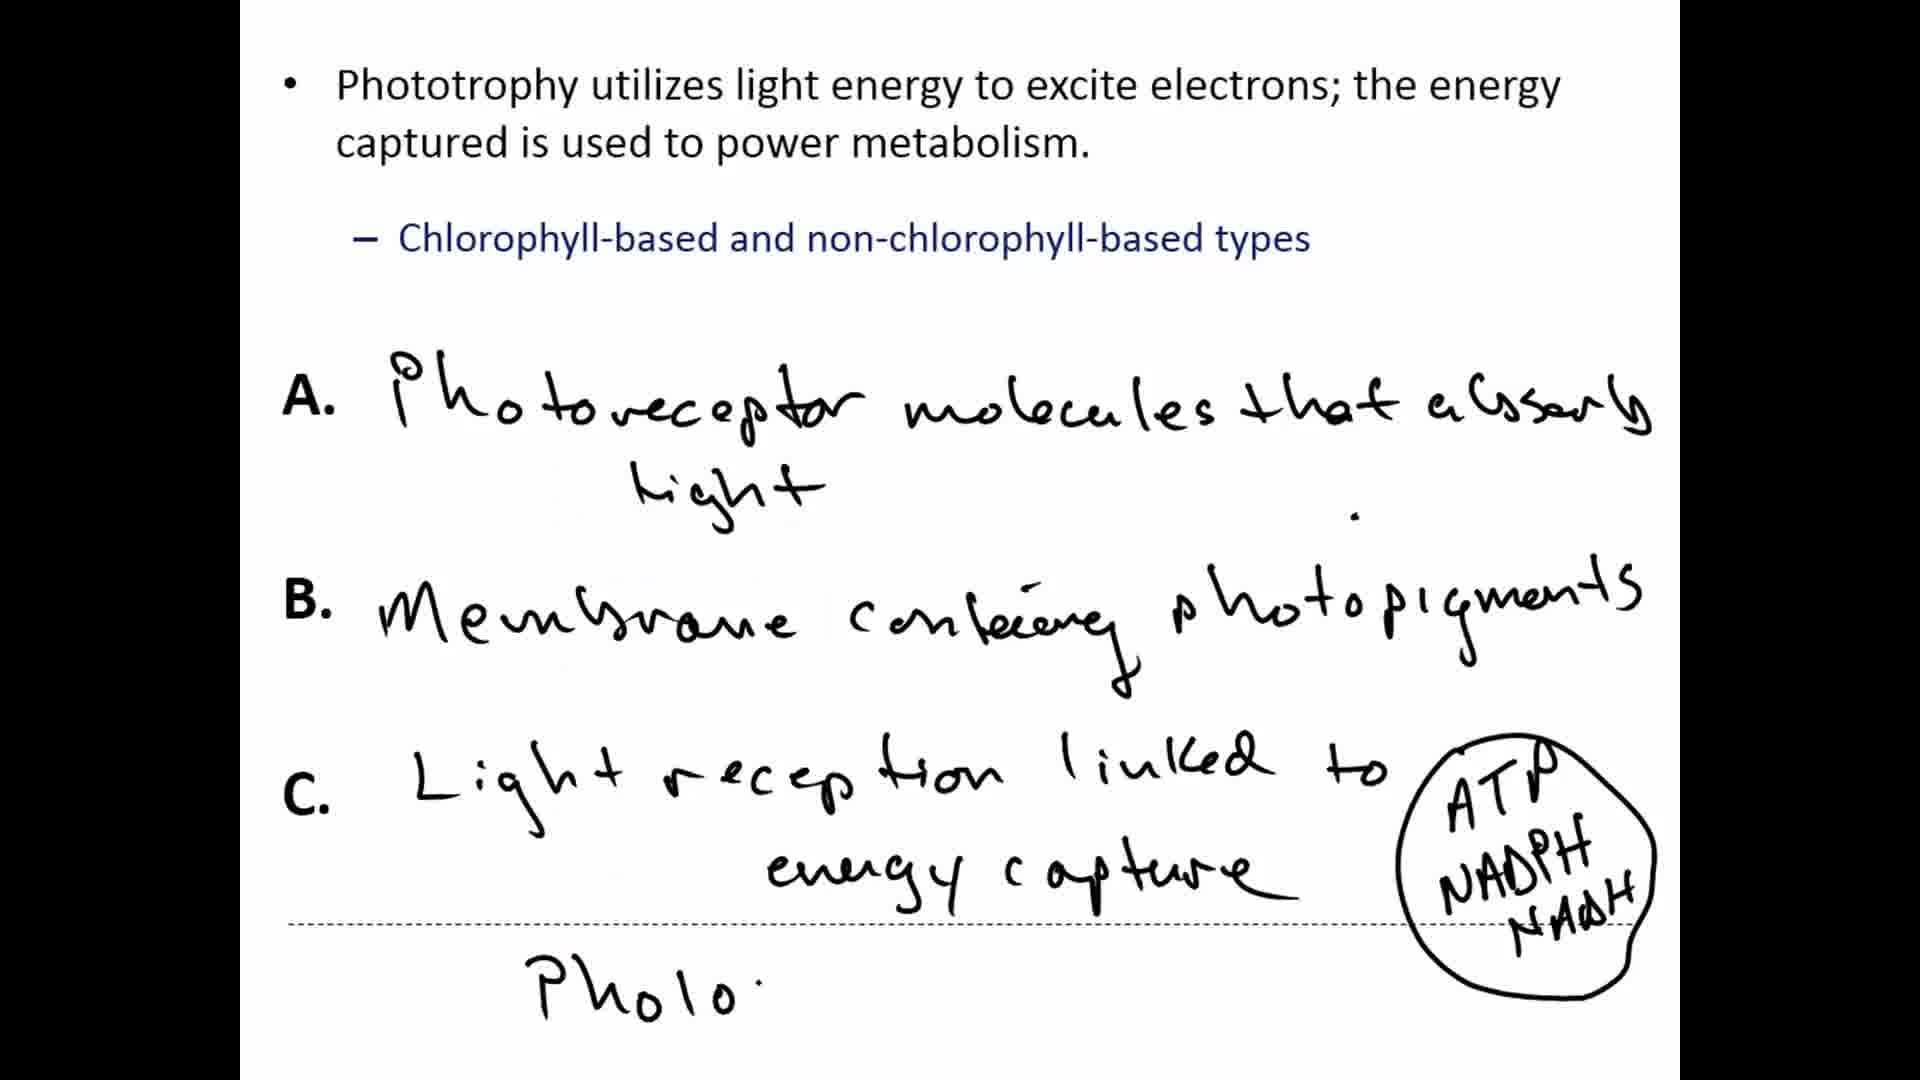 • Phototrophy utilizes light energy to excite electrons; the energy
captured is used to power metabolism.
– Chlorophyll-based and non-chlorophyll-based types
A. Photoreceptor molecules that absorb
light
B. Membrane containing photopigments
C. Light reception linked to
energy capture
ATP
NADPH
NADH
Photo